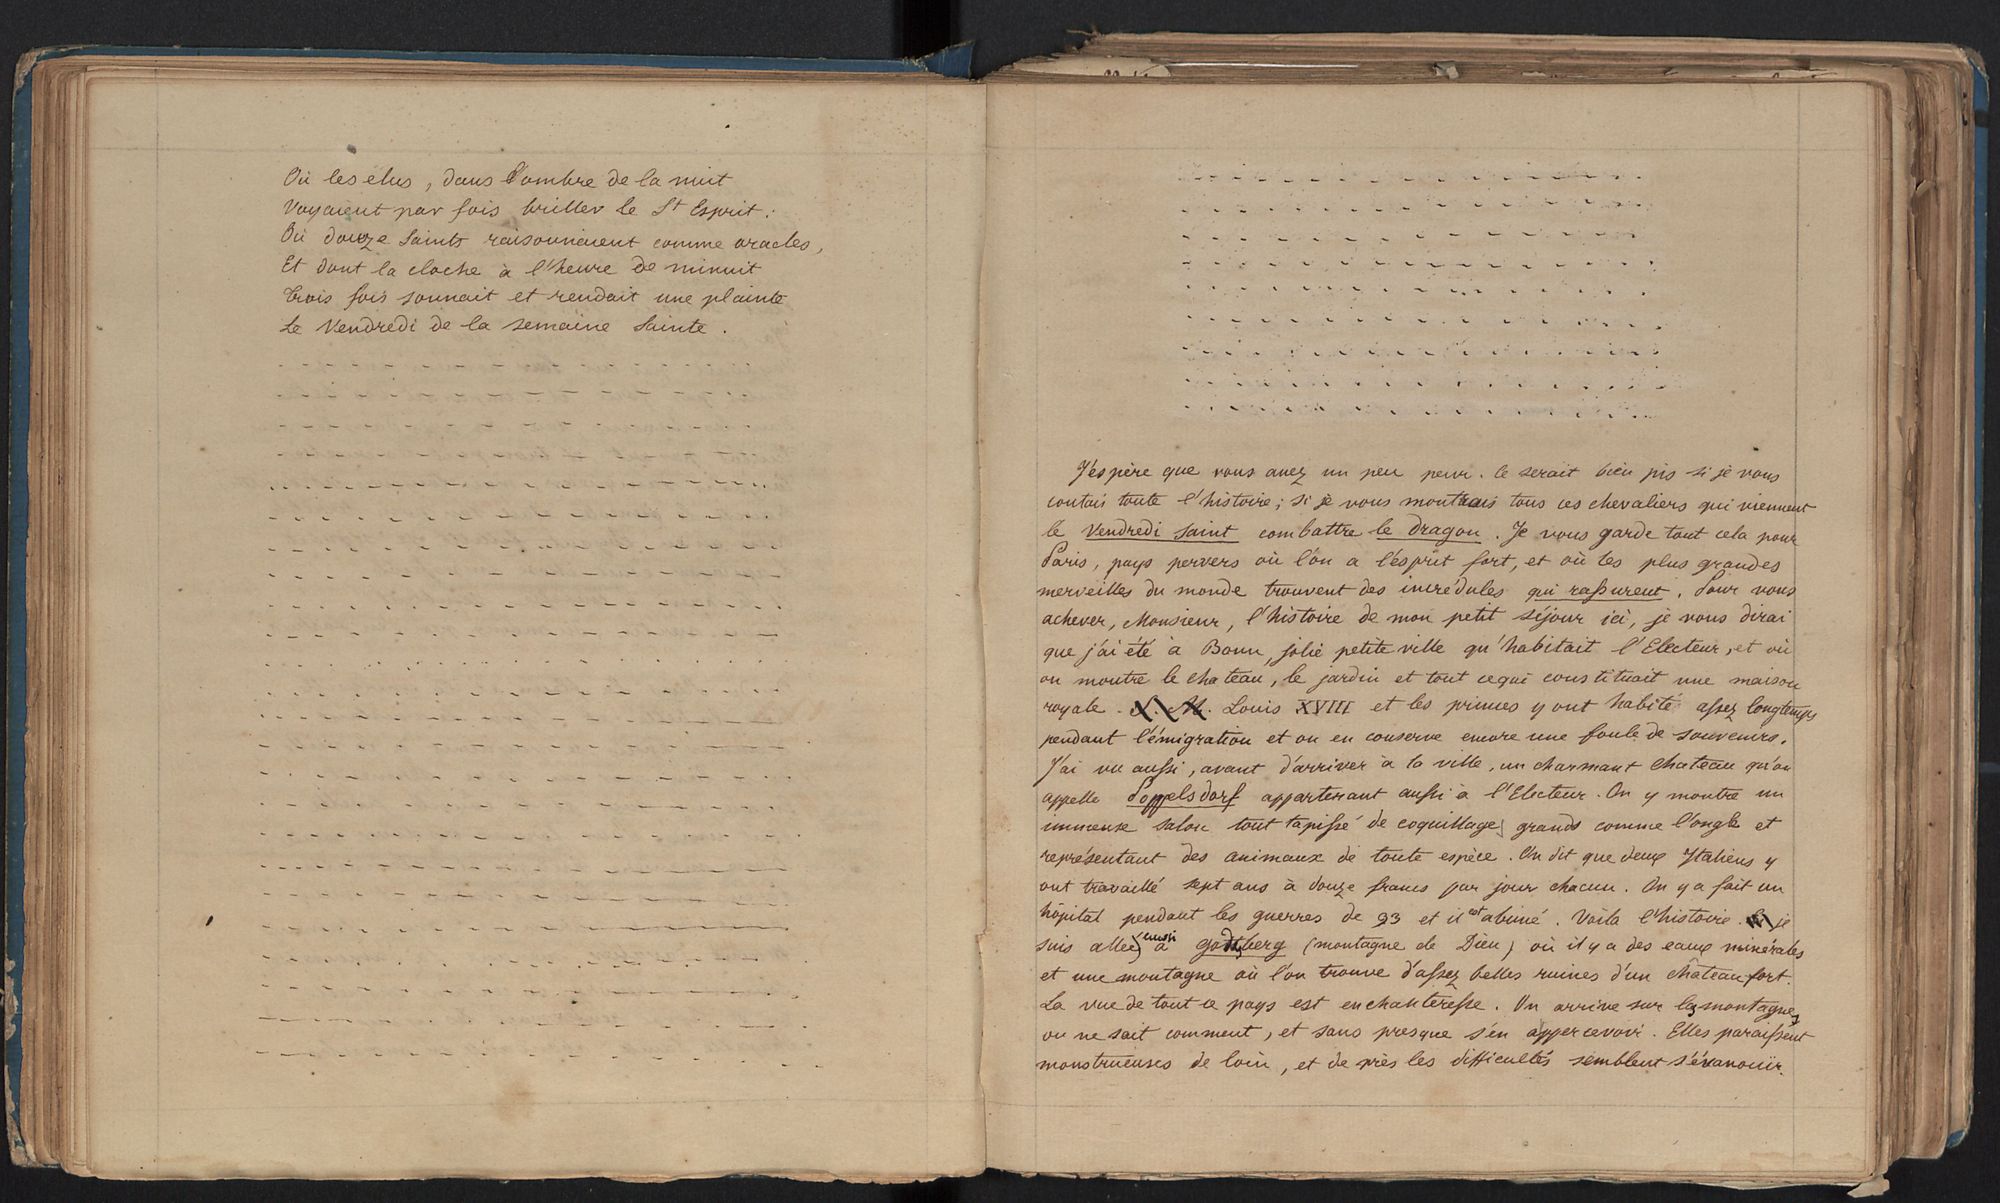 Où les élus, dans l'ombre de la nuit
Voyaient par fois briller le St Esprit;
Où douze Saints raisonnaient comme oracles,
Et dont la cloche à l'heure de minuit
Trois fois sonnait et rendait une plainte
Le Vendredi de la semaine Sainte.
J'espère que vous avez un peu peur. Ce serait bien pis si je vous
contais toute l'histoire; si je vous montrais tous ces chevaliers qui viennent
le Vendredi Saint combattre le dragon. Je vous garde tout cela pour
Paris, pays pervers où l'on a l'esprit fort, et où les plus grandes
merveilles du monde trouvent des incrédules qui rassurent. Pour vous
achever, Monsieur, l'histoire de mon petit séjour ici, je vous dirai
que j'ai été à Bonn, jolie petite ville qu'habitait l'Electeur, et où
on montre le chateau, le jardin et tout ce qui constituait une maison
royale. S. M. Louis XVIII et les princes y ont habité assez longtemps
pendant l'émigration et on en conserve encore une foule de souvenirs.
J'ai vu aussi, avant d'arriver à la ville, un charmant chateau qu'on
appelle Poppelsdorf appartenant aussi à l'Electeur. On y montre un
immense salon tout tapissé de coquillages grands comme l'ongle et
représentant des animaux de toute espèce. On dit que deux Italiens y
ont travaillé sept ans à douze francs par jour chacun. On y a fait un
hôpital pendant les guerres de 93 et il est abimé. Voilà l'histoire. je
suis allée aussi à godsberg (montagne de Dieu) où il y a des eaux minérales
et une montagne où l'on trouve d'assez belles ruines d'un chateau fort.
La vue de tout ce pays est enchanteresse. On arrive sur les montagnes
on ne sait comment, et sans presque s'en appercevoir. Elles paraissent
monstrueuses de loin, et de près les difficultés semblent s'évanouir.